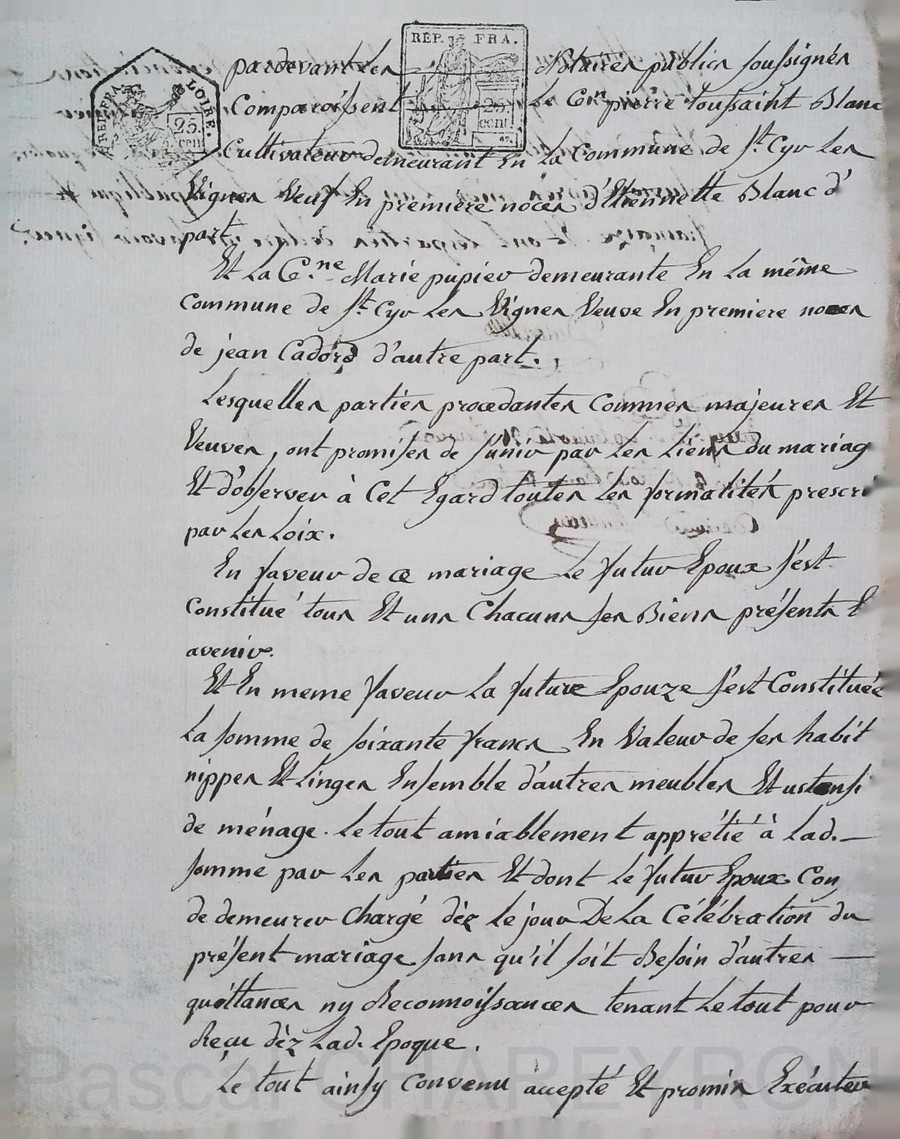 REP. FRA.
25 cent.
LOIRE.
25. cent
pardevant les Notaires publics soussignés
Comparoissent Le Cen pierre toussaint Blanc
Cultivateur demeurant En La Commune de St. Cyr Les
Vignes Veuf En premiere noces d'Etiennette Blanc d'
part
Et La Cne Marie pupier demeurante En La même
Commune de St. Cyr Les Vignes Veuve En premiere noces
de jean Cadore d'autre part.
Lesquelles parties procedantes Commes majeures Et
Veuves, ont promises de s'unir par Les Liens du mariag
Et d'observer à Cet Egard toutes Les formalités prescri
par Les Loix.
En faveur de ce mariage Le futur Epoux s'est
Constitué tous Et uns Chacuns ses Biens présents E
avenir.
Et En meme faveur La future Epouze s'est Constituée
La somme de soixante francs En Valeur de ses habit
nippes Et Linges Ensemble d'autres meubles Et ustensi
de ménage. Le tout amiablement apprétié à Lad.
somme par Les parties Et dont Le futur Epoux Con
de demeurer Chargé dèz Le jour De La Célébration du
présent mariage sans qu'il soit Besoin d'autres
quittances ny Reconnoissances tenant Le tout pour
Recu dèz Lad. Epoque.
Le tout ainsy convenu accepté Et promis Exécuter
Pascal CHAPEYRON